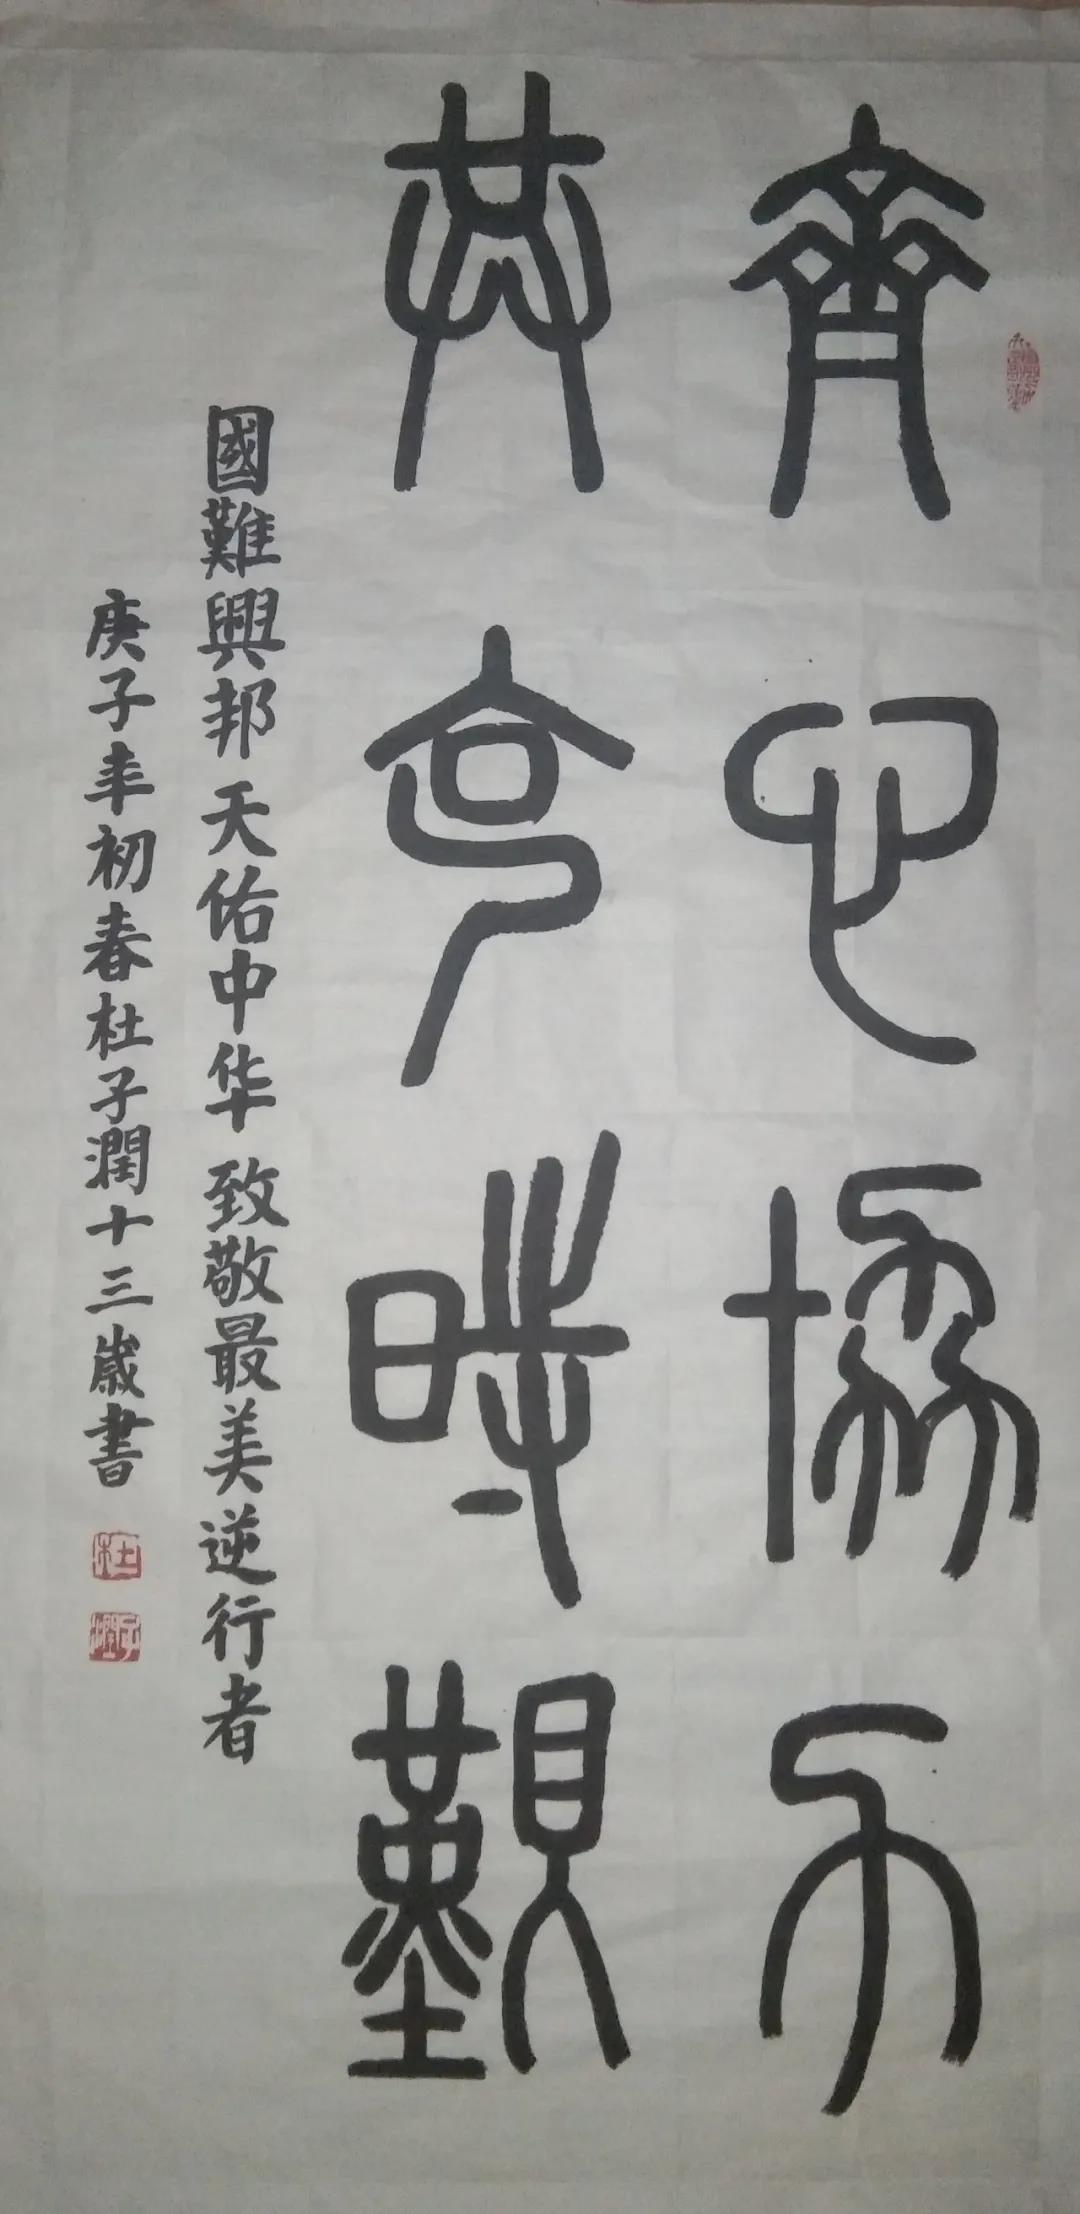 齊心協力
共克時艱
國難興邦天佑中华 致敬最美逆行者
庚子年初春杜子潤十三歲書
杜
子潤